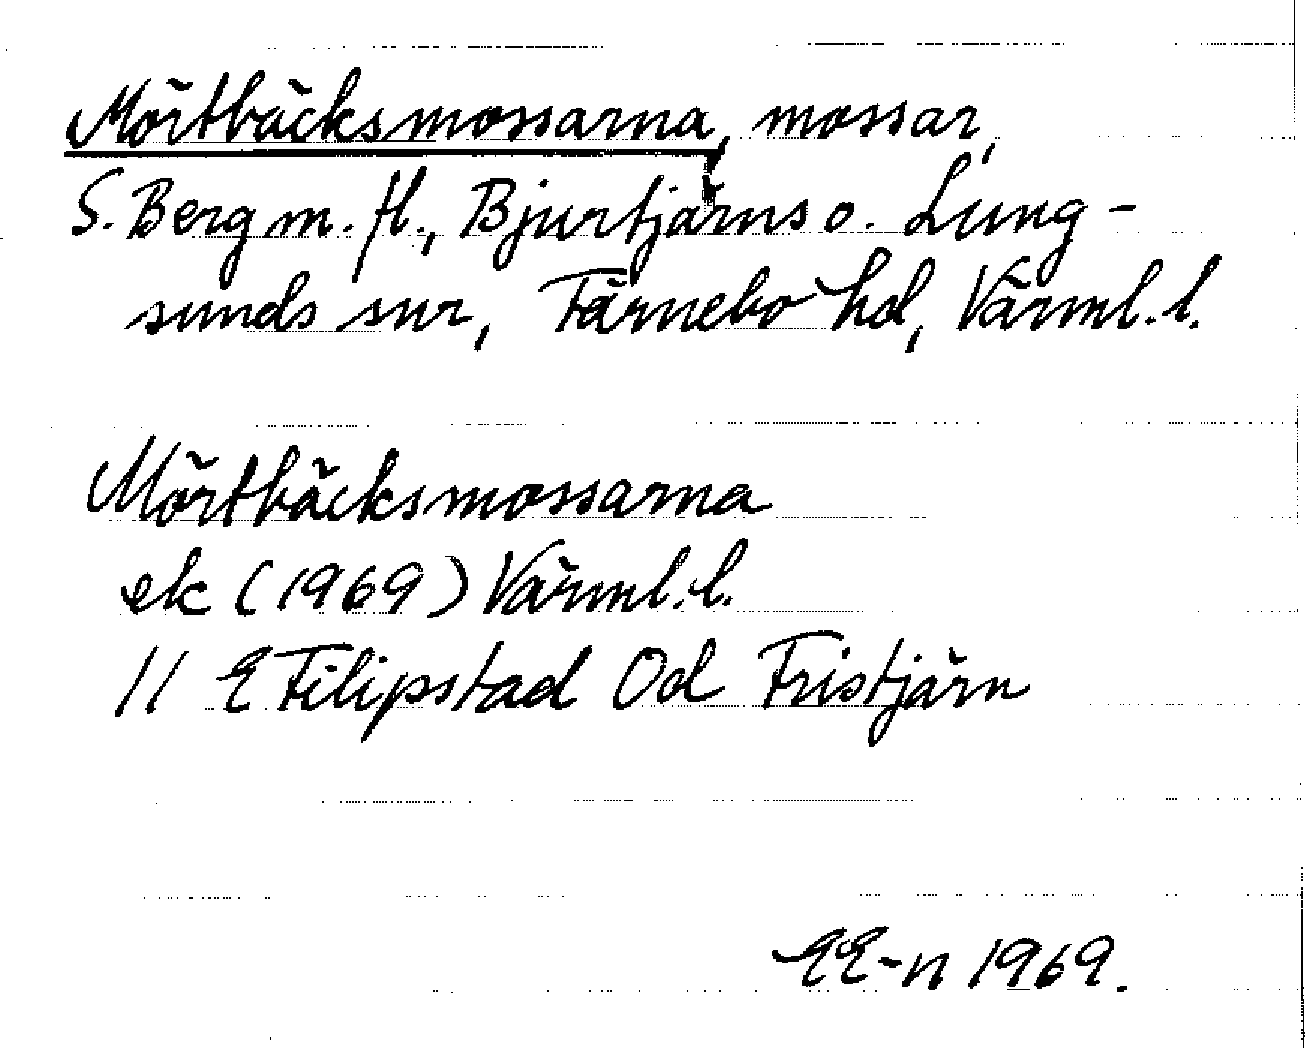 Mörtbäcksmossarna, mossar,
S. Berg m. fl., Bjurtjärns o. Lung-
sunds snr, Färnebo hd, Värml. l.
Mörtbäcksmossarna
ek (1969) Värml. l.
11 E Filipstad Od Fristjärn
EE-n 1969.